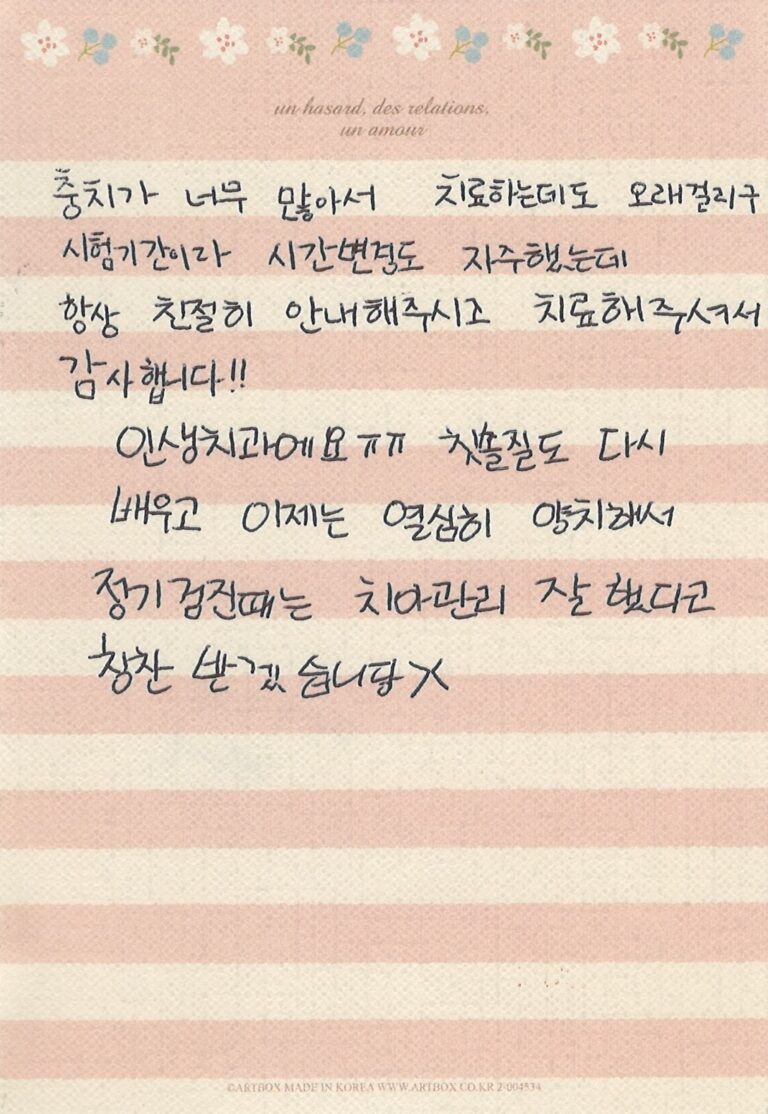 un hasard, des relations,
un amour
충치가 너무 많아서 치료하는데도 오래걸리구
시험기간이라 시간변경도 자주했는데
항상 친절히 안내해주시고 치료해주셔서
감사합니다!!
인생치과에요ㅠㅠ 칫솔질도 다시
배우고 이제는 열심히 양치해서
정기검진때는 치아관리 잘했다고
칭찬 받겠습니당X
©ARTBOX MADE IN KOREA WWW.ARTBOX.CO.KR 2-004534